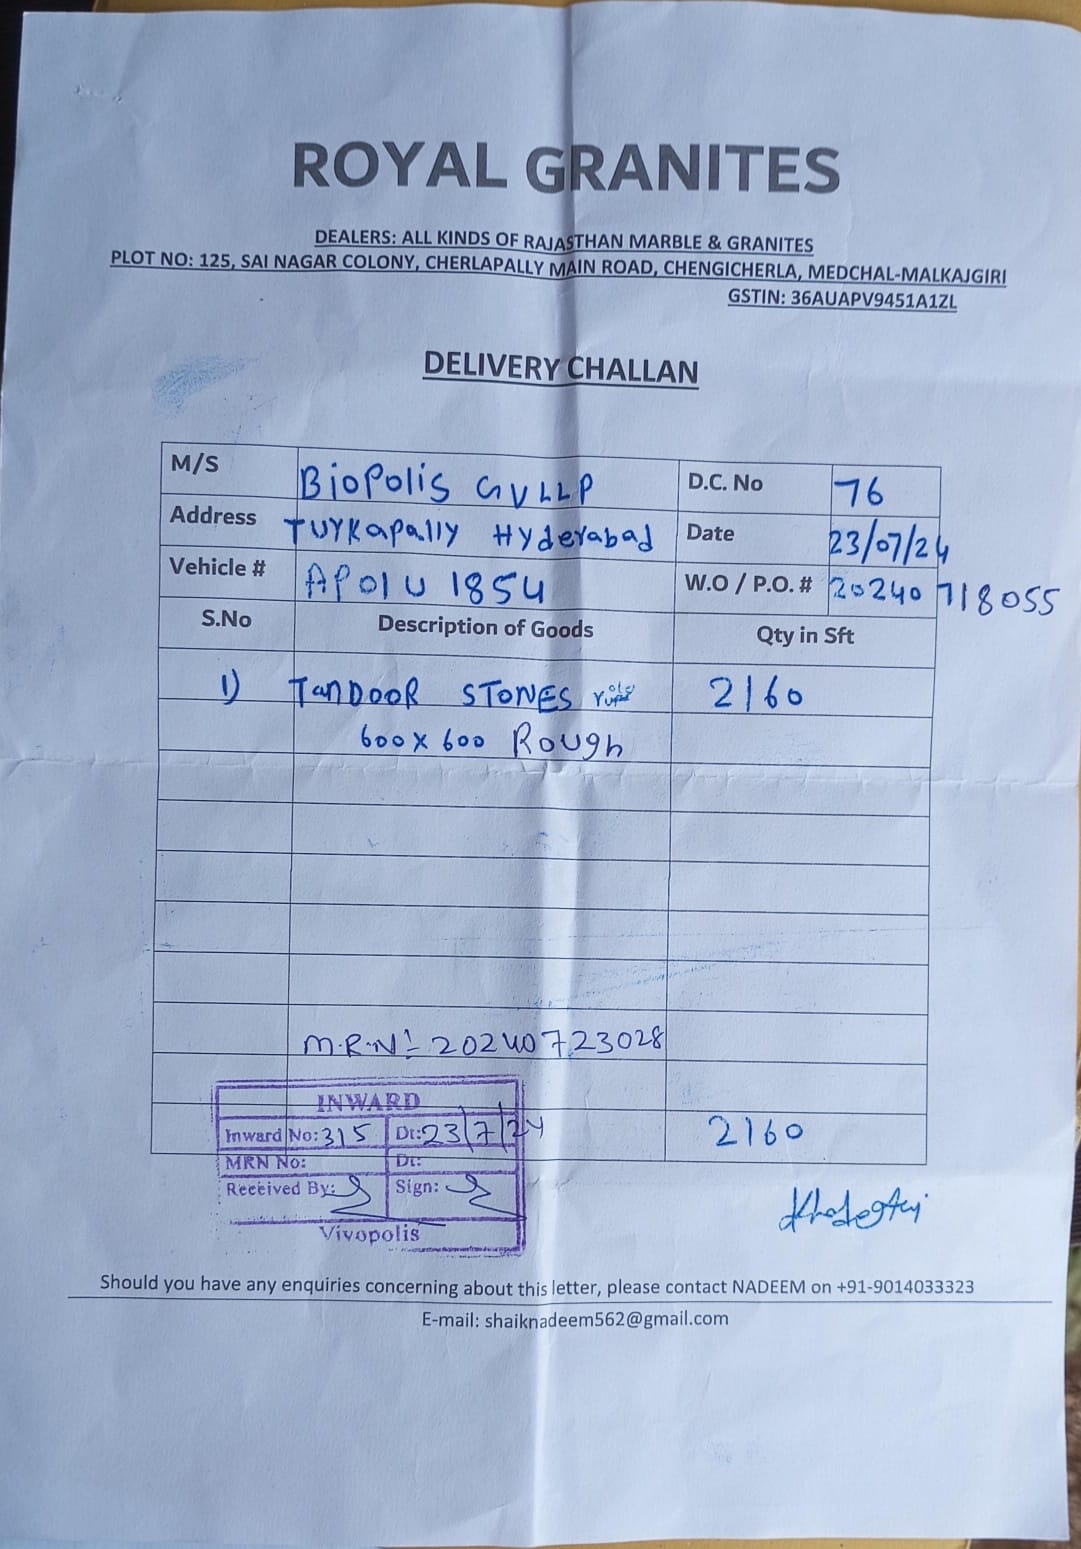 ROYAL GRANITES
DEALERS: ALL KINDS OF RAJASTHAN MARBLE & GRANITES
PLOT NO: 125, SAI NAGAR COLONY, CHERLAPALLY MAIN ROAD, CHENGICHERLA, MEDCHAL-MALKAJGIRI
GSTIN: 36AUAPV9451A1ZL
DELIVERY CHALLAN
M/S BioPolis GVLLP D.C. No 76
Address Turkapally Hyderabad Date 23/07/24
Vehicle # AP01U 1854 W.O / P.O. # 20240718055
S.No Description of Goods Qty in Sft
1) TanDOOR STONES 2160
600 x 600 Rough
M.R.N:- 20240723028
INWARD
Inward No: 315 Dt: 23/7/24
2160
MRN No: Dt:
Received By: Sign:
Vivopolis
Should you have any enquiries concerning about this letter, please contact NADEEM on +91-9014033323
E-mail: shaiknadeem562@gmail.com